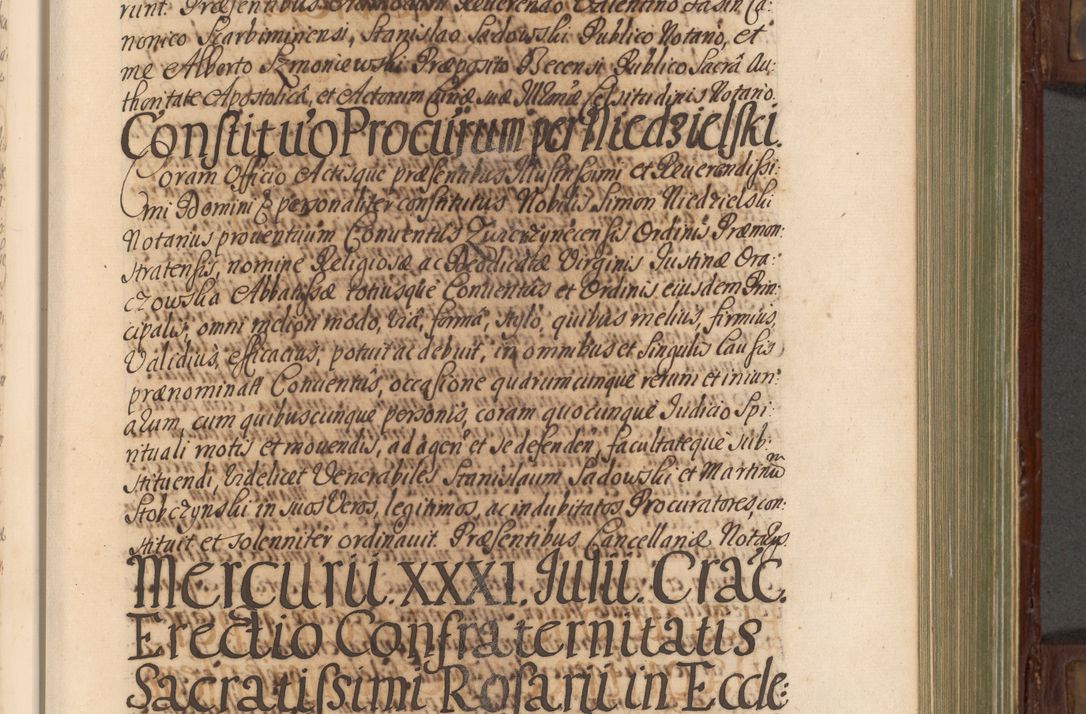 runt. Præsentibus Admodum Reverendo Valentino Jasin Ca:
nonico Scarbimirensi, Stanislao Sadowski Publico Notario, et
me Alberto Szmoniewski Præposito Becensi Publico Sacra Au:
thoritate Apostolica, et Actorum Curiæ suæ Illmæ Celsitudinis Notario.
Constituo Procurum per Niedzielski.
Coram Officio Actisque præsentibus Illustrissimi et Reverendissi:
mi Domini E personaliter constitutus Nobilis Simon Niedzielski
Notarius proventuum Conventus Zwierzynecensis Ordinis Præmon:
stratensis, nomine Religiosæ ac Deodicatæ Virginis Justinæ Ora:
czowska Abbatissæ totiusque Conventus et Ordinis eiusdem Prin:
cipalis, omni meliori modo, via, forma, stylo, quibus melius, firmius,
validius, efficacius, potuit ac debuit, in omnibus et singulis Causis
prænominati Conventus, occasione quarumcunque rerum et iniuri
arum, cum quibuscunque personis, coram quocunque Judicio Spi:
rituali motis et movendis, ad agen et se defenden, facultateque sub:
stituendi, videlicet Venerabiles Stanislaum Sadowski et Martinum
Stobczynski in suos veros, legitimos, ac indubitatos Procuratores, con:
stituit et solenniter ordinavit. Præsentibus Cancellariæ Notarys.
Mercurii. XXXI. Julii. Crac.
Erectio Confraternitatis
Sacratissimi Rosarii in Eccle: